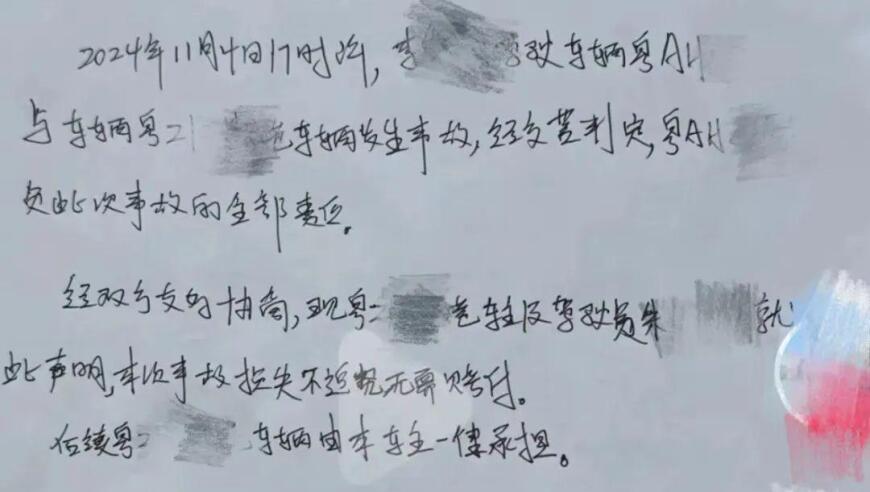 2024年11月4日17时许,李 驾驶车辆粤AH
与车辆粤Z 色车辆发生事故,经交警判定,粤AH
负此次事故的全部责任。
经双方友好协商,现粤Z 色车主及驾驶员朱 就
此声明,本次事故损失不追究无需赔付。
后续粤Z 车辆由本车主一律承担。